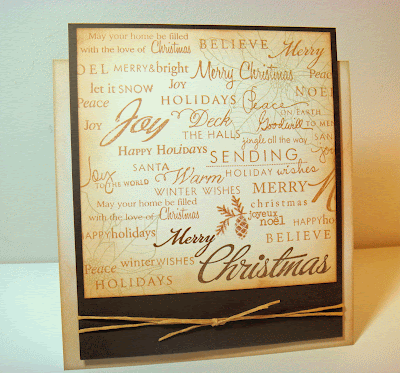 May your home be filled
with the love of Christmas BELIEVE Merry
NOEL MERRY&bright Merry Christmas Peace
let it SNOW Joy NOEL
Peace HOLIDAYS Peace ON EARTH
Joy Joy Deck Goodwill TO MEN
THE HALLS jingle all the way
HAPPY HOLIDAYS SENDING
Joy TO THE WORLD SANTA Warm HOLIDAY wishes
WINTER WISHES MERRY
May your home be filled christmas
with the love of Christmas joyeux
noël HAPPY
HAPPY holidays Merry BELIEVE
Peace winter WISHES Christmas
HOLIDAYS